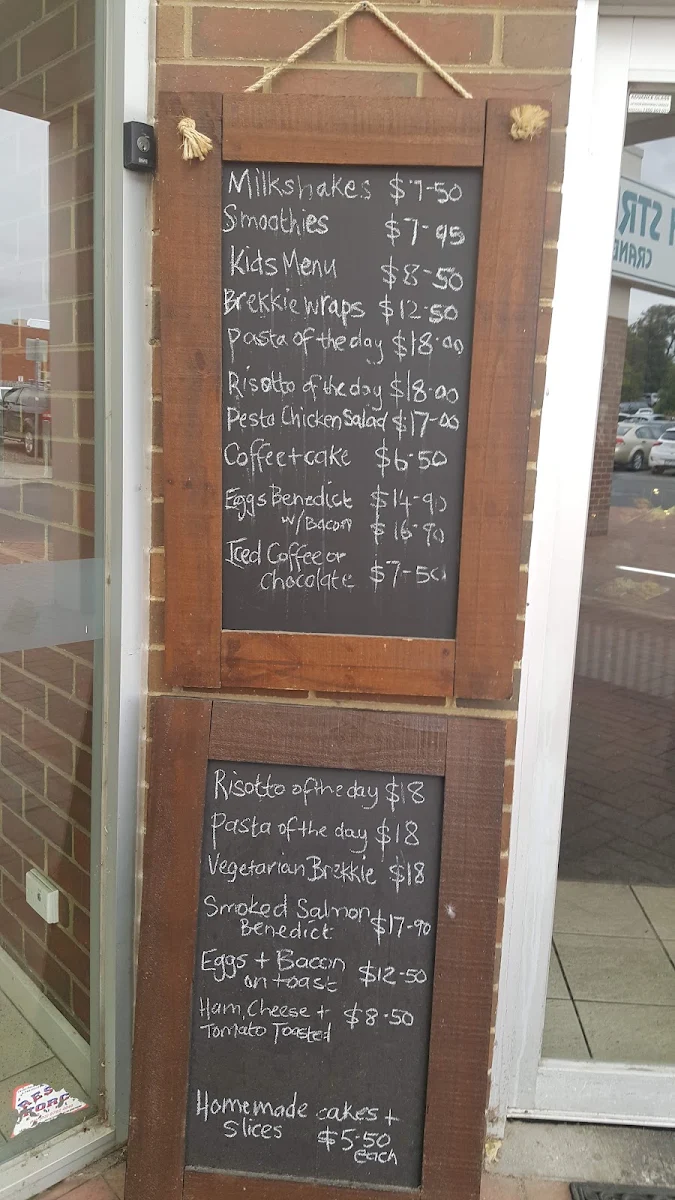 Milkshakes $7-50
Smoothies $7-95
Kids Menu $8-50
Brekkie wraps $12-50
Pasta of the day $18-00
Risotto of the day $18-00
Pesto Chicken Salad $17-00
Coffee + cake $6-50
Eggs Benedict $14-90
w/Bacon $16-90
Iced Coffee or
chocolate $7-50
Risotto of the day $18
Pasta of the day $18
Vegetarian Brekkie $18
Smoked Salmon
Benedict $17-90
Eggs + Bacon
on toast $12-50
Ham, Cheese + $8-50
Tomato Toasted
Homemade cakes +
Slices $5-50
each